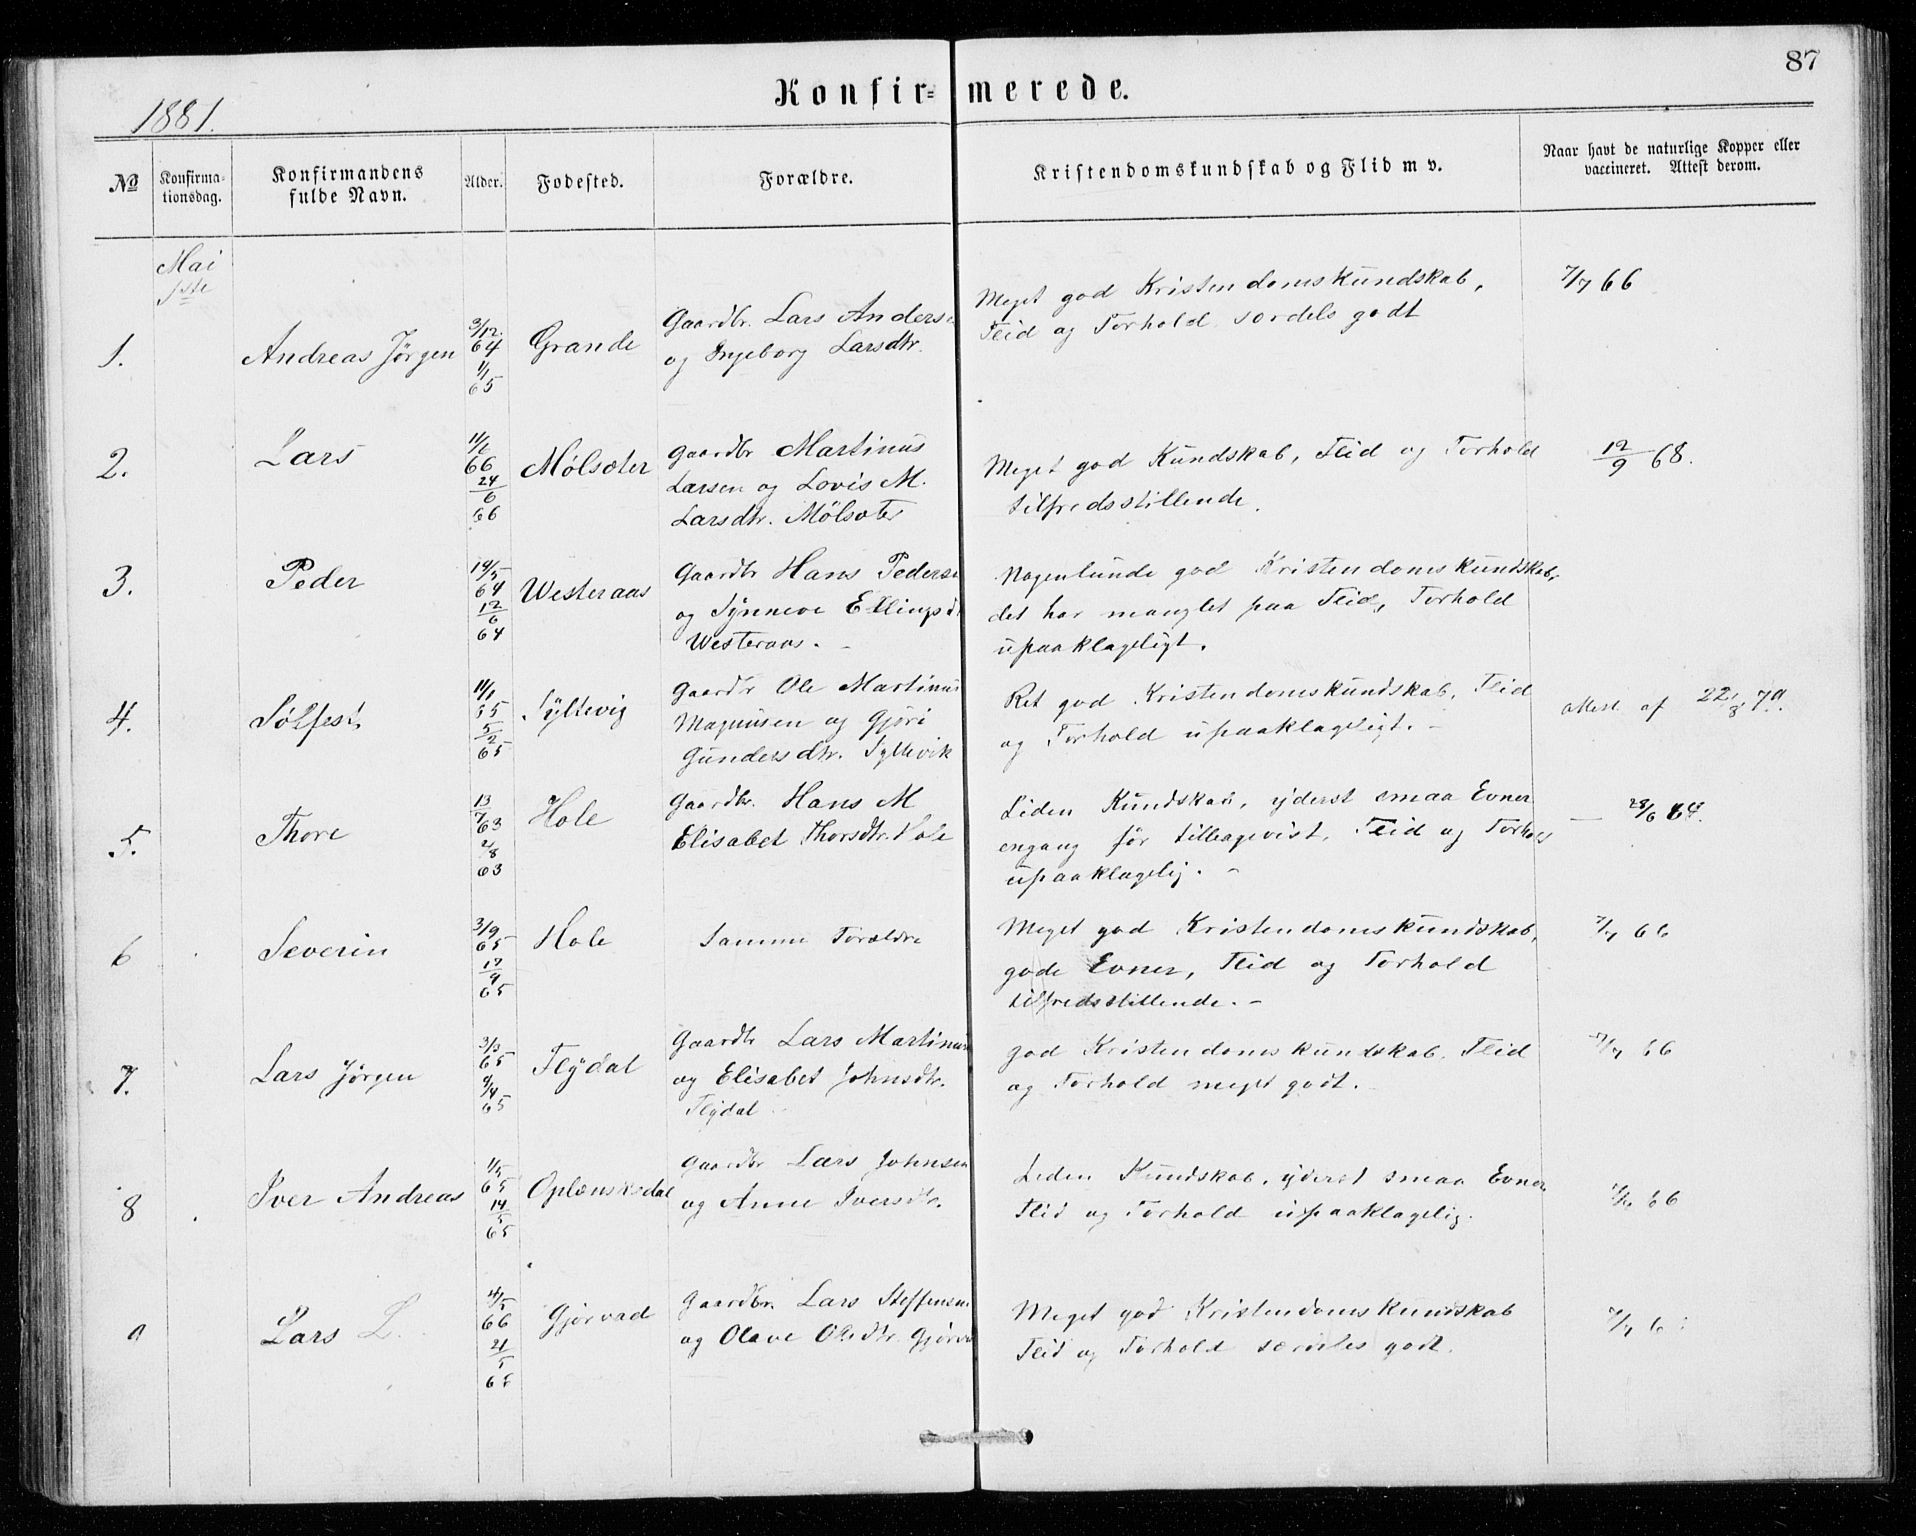 87
Konfir= merede.
1881.
No
Konfirma-
tionsdag.
Konfirmandens
fulde Navn.
Alder.
Fødested.
Forældre.
Kristendomskundskab og Flid m v.
Naar havt de naturlige Kopper eller
vaccineret. Attest derom.
Mai
1.
Andreas Jørgen
3/12
64
1/1
65
Grande
Gaardbr. Lars Anders
og Ingeborg Larsdtr.
Meget god Kristendomskundskab,
Flid og Forhold særdeles godt
7/7 66
2.
Lars
66
24
6
66
Mölsæter
Gaardbr Martinus
Larsen og Lovis M.
Larsdtr. Mölsæter
Meget god Kundskab, Flid og Forhold
tilfredsstillende.
12/9 68.
3.
Peder
19/5
64
12
6
64
Westeraas
Gaardbr Hans Peders
og Synneve Ellingsd
Westeraas.
Nogenlunde god Kristendomskundskab,
det har manglet paa Flid, Forhold
upaaklageligt.
4.
Sölfest
11/1
65
5
2
65
Syltevig
Gaardbr Ole Martinus
Magnusen og Gjöri
Gundersdtr. Syltevik
Ret god Kristendomskundskab, Flid
og Forhold upaaklageligt. -
attest af 22/8 79.
5.
Thore
13
7/63
2/8
63
Hole
Gaardbr. Hans M
Elisabet Thorsdtr. Hole
Liden Kundskab, yderst smaa Evner
engang för tilbagevist, Flid og Forhold
upaaklagelig. -
6
Severin
3/9
65
17
9
65
Hole
Samme Forældre
Meget god Kristendomskundskab,
gode Evner, Flid og Forhold
tilfredsstillende. -
7/7 66
7.
Lars Jörgen
3/3
65
9/4
65
Flydal
Gaardbr Lars Martinus
og Elisabet Johnsdtr.
Flydal
god Kristendomskundskab. Flid
og Forhold meget godt.
66
8
Iver Andreas
1/5
65
14
5
65
Oplænskedal
Gaardbr Lars Johnsen
og Anne Iversdtr.
Liden Kundskab, yderst smaa Evner
Flid og Forhold upaaklagelig.
66
9
Lars L.
66
21
5
Gjörvad
Gaardbr. Lars Steffensen
og Olave Olsdtr. Gjörva
Meget god Kristendomskundskab
Flid og Forhold særdeles godt.